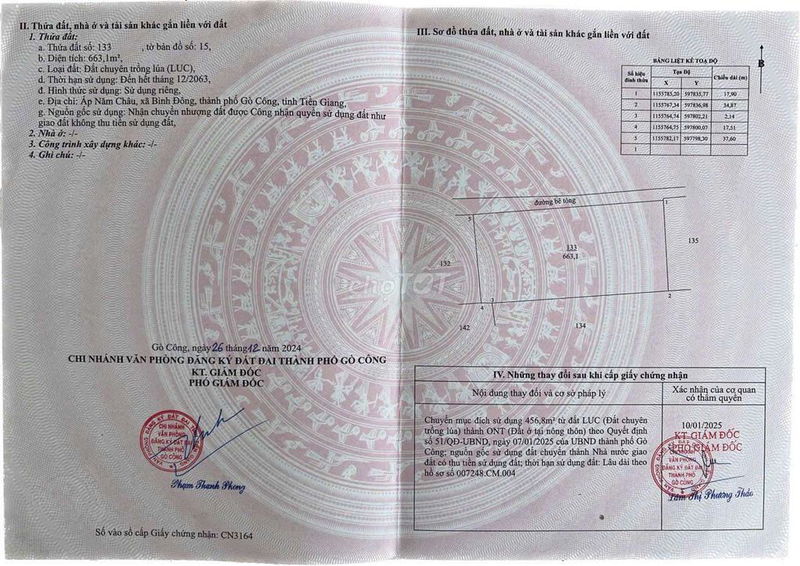 II. Thửa đất, nhà ở và tài sản khác gắn liền với đất
1. Thửa đất:
a. Thửa đất số: 133 , tờ bản đồ số: 15,
b. Diện tích: 663,1m²,
c. Loại đất: Đất chuyên trồng lúa (LUC),
d. Thời hạn sử dụng: Đến hết tháng 12/2063,
đ. Hình thức sử dụng: Sử dụng riêng,
e. Địa chỉ: Ấp Năm Châu, xã Bình Đông, thành phố Gò Công, tỉnh Tiền Giang,
g. Nguồn gốc sử dụng: Nhận chuyển nhượng đất được Công nhận quyền sử dụng đất như
giao đất không thu tiền sử dụng đất,
2. Nhà ở: -/-
3. Công trình xây dựng khác: -/-
4. Ghi chú: -/-
Gò Công, ngày 26 tháng 12 năm 2024
CHI NHÁNH VĂN PHÒNG ĐĂNG KÝ ĐẤT ĐAI THÀNH PHỐ GÒ CÔNG
KT. GIÁM ĐỐC
PHÓ GIÁM ĐỐC
CHI NHÁNH
VĂN PHÒNG
ĐĂNG KÝ ĐẤT ĐAI
THÀNH PHỐ
GÒ CÔNG
Phạm Thanh Phong
Số vào sổ cấp Giấy chứng nhận: CN3164
III. Sơ đồ thửa đất, nhà ở và tài sản khác gắn liền với đất
BẢNG LIỆT KÊ TOẠ ĐỘ
Số hiệu đỉnh thửa Tọa Độ Chiều dài (m)
X Y
1 1155785,20 597835,77 17,90
2 1155767,34 597836,98 34,87
3 1155764,74 597802,21 2,14
4 1155764,75 597800,07 17,51
5 1155782,17 597798,30 37,60
1
B
đường bê tông
5 1
133
663,1
132 135
4 3 2
142 134
chợ TỐT
IV. Những thay đổi sau khi cấp giấy chứng nhận
Nội dung thay đổi và cơ sở pháp lý
Xác nhận của cơ quan
có thẩm quyền
Chuyển mục đích sử dụng 456,8m² từ đất LUC (Đất chuyên
trồng lúa) thành ONT (Đất ở tại nông thôn) theo Quyết định
số 51/QĐ-UBND, ngày 07/01/2025 của UBND thành phố Gò
Công; nguồn gốc sử dụng đất chuyển thành Nhà nước giao
đất có thu tiền sử dụng đất; thời hạn sử dụng đất: Lâu dài theo
hồ sơ số 007248.CM.004
10/01/2025
KT GIÁM ĐỐC
PHÓ GIÁM ĐỐC
VĂN PHÒNG
ĐĂNG KÝ ĐẤT ĐAI
THÀNH PHỐ
GÒ CÔNG
Lâm Thị Phương Thảo